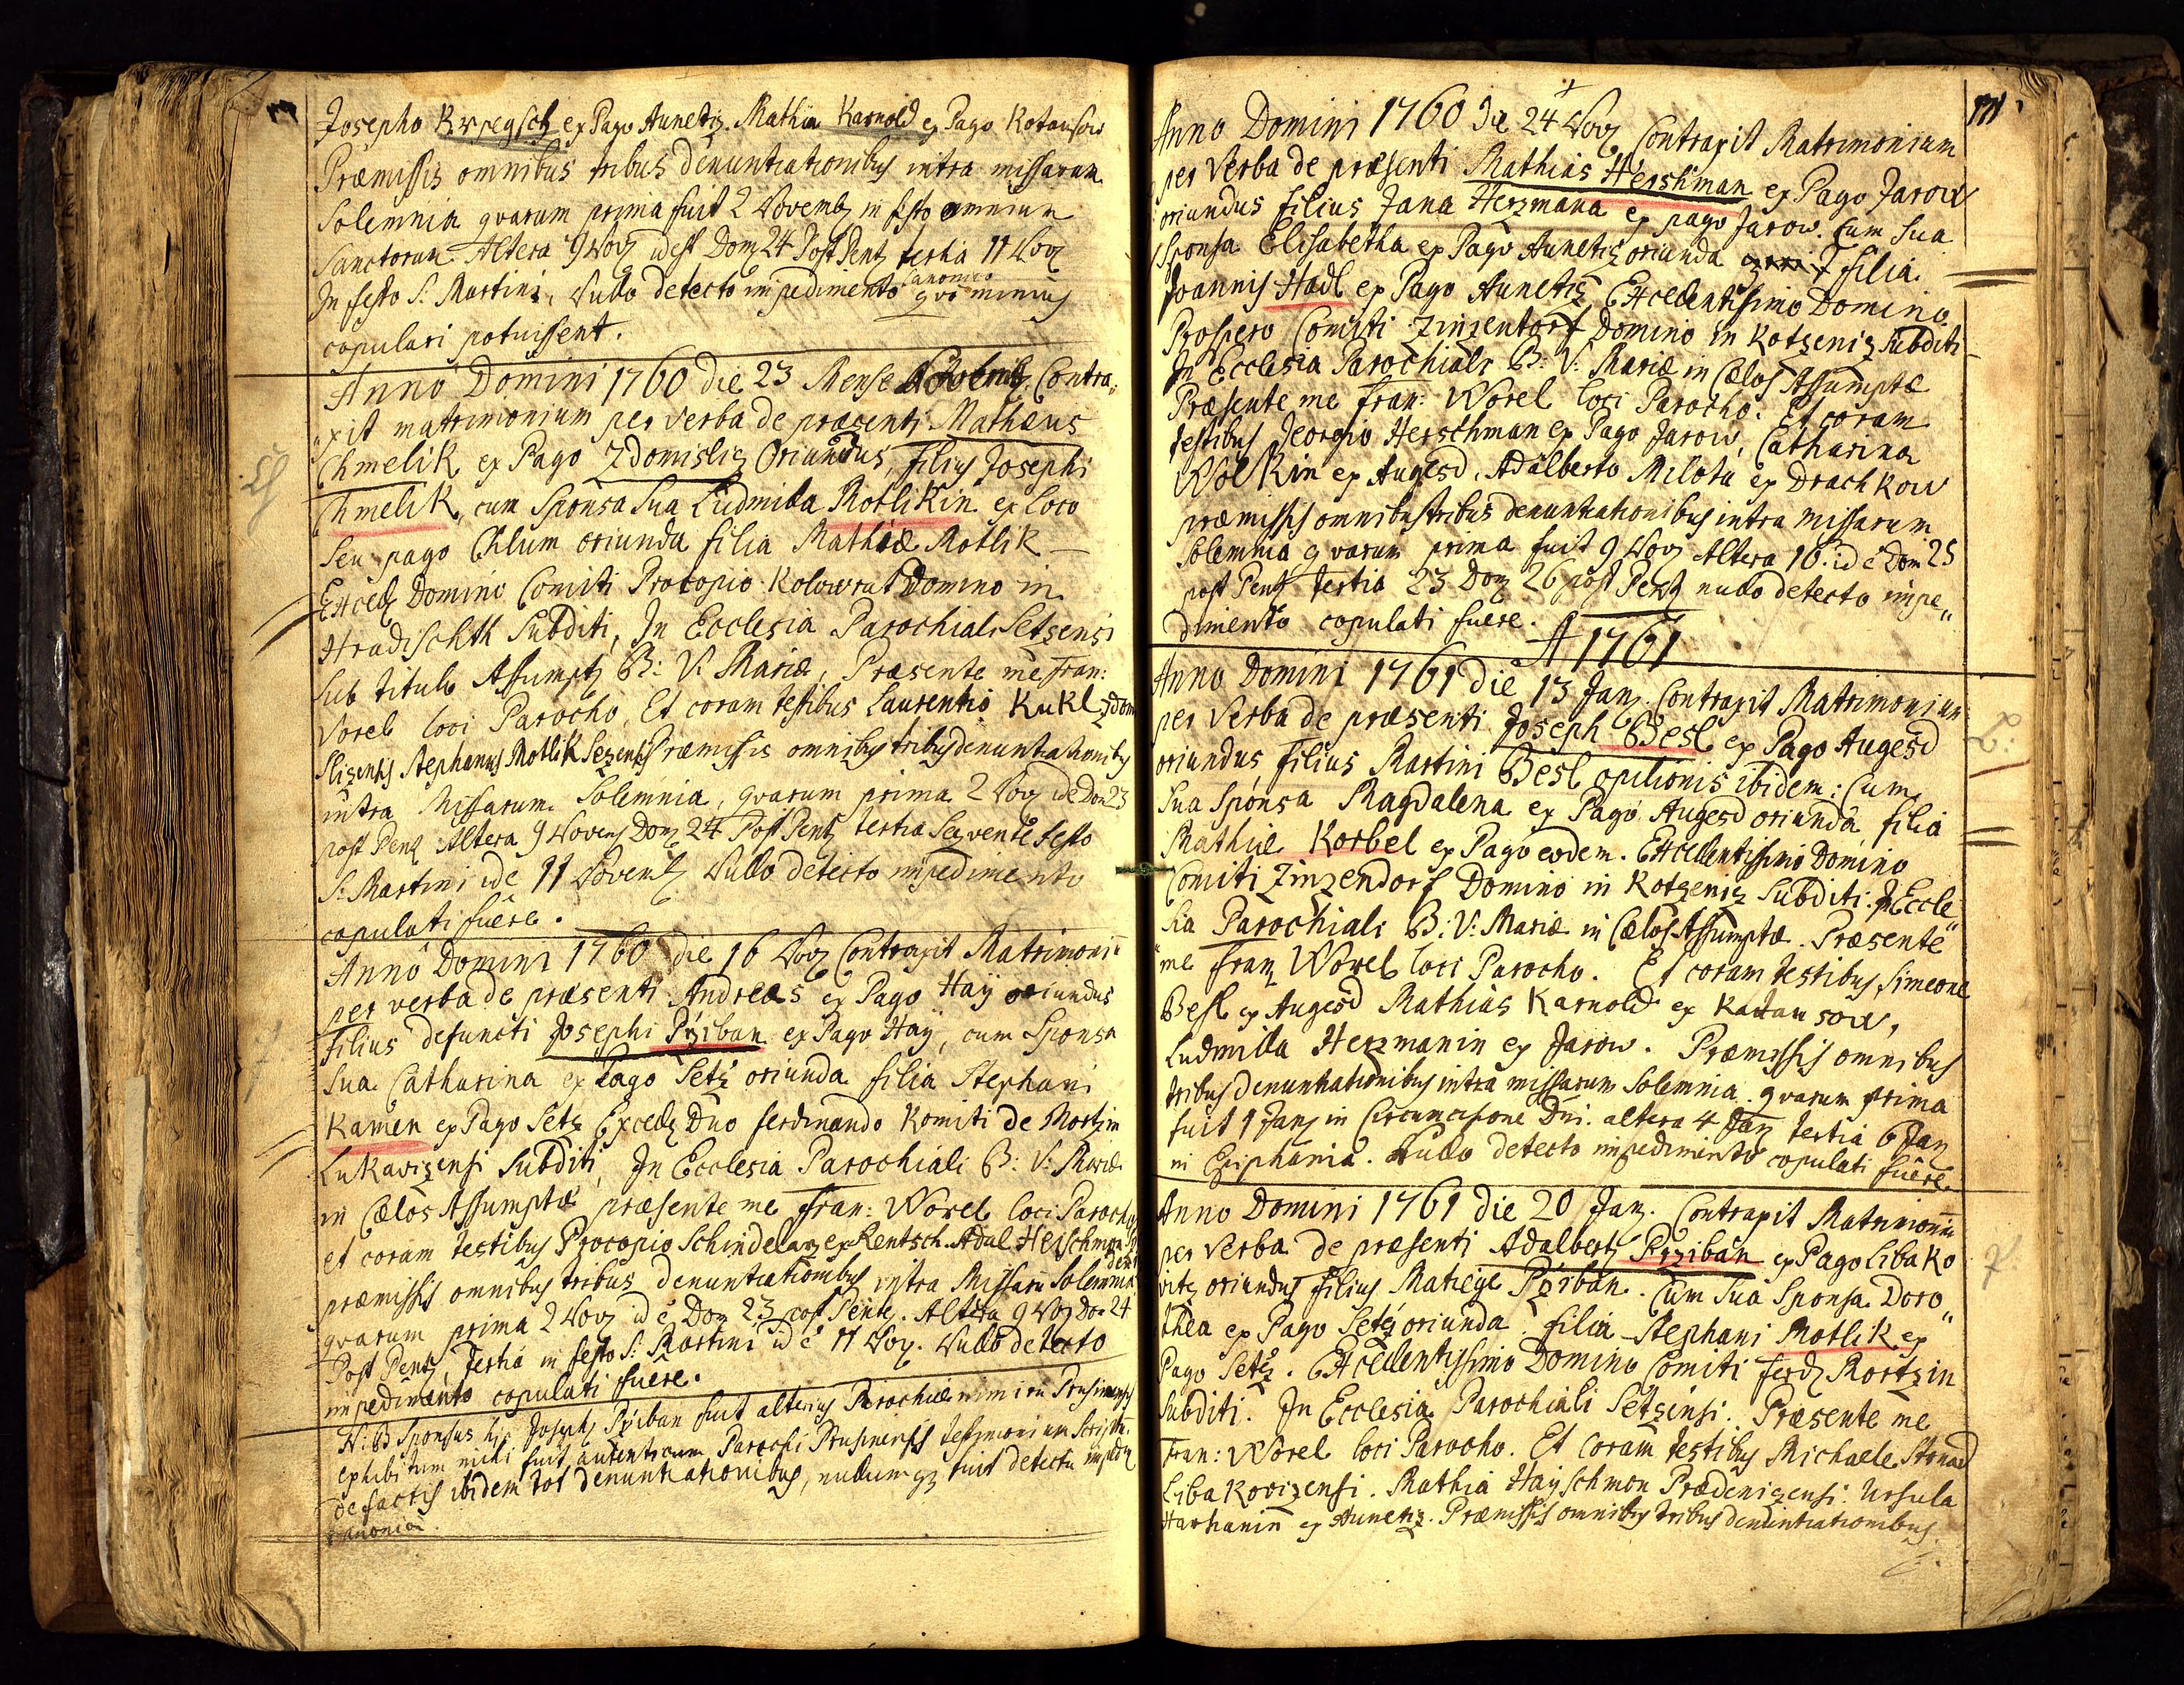 Josepho Krpegsch ex Pago Aunetiz. Mathia Karnold ex Pago Kotansow
Præmissis omnibus tribus denuntiationibus intra missarum
Solemnia qvarum prima fuit 2 Novemb in festo omnium
Sanctorum Altera 9 Nov idest Dom 24 Post Pent tertia 11 Nov
In festo S. Martini, Nullo detecto impedimento Canonico qvo minus
copulari potuissent.
Anno Domini 1760 die 23 Mense Novemb. Contra„
„xit matrimonium per verba de præsenti Mathæus
Chmelik ex Pago Zdomisliz Oriundus, filius Josephi
Chmelik, cum Sponsa Sua Ludmilla Motlikin ex Loco
seu pago Chlum oriunda filia Mathiæ Motlik
Excell Domino Comiti Procopio Kolowrat Domino in
Hradischth Subditi, In Ecclesia Parochiali Setzensi
Sub titulo Assumpt B: V: Mariæ, Præsente me Fran:
Vorel loci Parocho, Et coram testibus Laurentio Kukl Zdom
slizensis Stephanus Motlik Sezensis Præmissis omnibus tribus denuntiationibus
intra Missarum Solemnia, qvarum prima 2 Nov id e Dom 23
post Pent Altera 9 Novem Dom 24 Post Pent tertia Seqvente festo
S: Martini id e 11 Novemb Nullo detecto impedimento
copulati fuêre.
Anno Domini 1760 die 16 Nov Contraxit Matrimoni
per verba de præsenti Andreas ex Pago Haÿ oriundus
filius defuncti Josephi Pÿiban ex Pago Haÿ, cum Sponsa
Sua Catharina ex Pago Setz oriunda filia Stephani
Kamen ex Pago Setz Excell Dno Ferdinando Komiti de Mortzin
Lukavizensi Subditi, In Ecclesia Parochiali B: V: Mariæ
in Cælos Assumptæ præsente me Fran: Worel loci Parocho
et coram testibus Procopio Schindelarz ex Rentsch. Adal Herschman
præmissis omnibus tribus denuntiationibus intra Missaru Solemnia
qvarum prima 2 Nov id e Dom 23 post Pent. Altera 9 Nov Dom 24
Post Pent, Tertia in festo S: Martini id e 11 Nov. Nullo detecto
impedimento copulati fuêre.
N: B Sponsus hic Joseph Pÿiban fuit alterius Parochiæ nimiru Prusinensis
exhibitum mihi fuit autenticum Parochi Prusinensis testimonium Scriptu
de factis ibidem tot denuntiationibus, nullumqz fuit detectu imped
canonicu.
171
Anno Domini 1760 Die 24 Nov Contraxit Matrimonium
per Verba de præsenti Mathias Hershman ex Pago Jarow
oriundus filius Jana Herzmana ex pago Jarow. Cum Sua
Sponsa Elisabetha ex Pago Aunetiz oriunda filia
Joannis Hadl ex Pago Aunetiz Excellentissimo Domino
Prospero Comiti Zinzentorf Domino in Kotzeniz Subditi
In Ecclesia Parochiali B: V: Mariæ in Cælos Assumptæ
Præsente me Fran: Worel loci Parocho. Et coram
testibus Jeorgio Herschman ex Pago Jarow, Catharina
Wolkin ex Augesd, Adalberto Milota ex Drachkow
præmissis omnibus tribus denuntiationibus intra Missarum
Solemnia qvarum prima fuit 9 Nov Altera 16. id e Dom 25
post Pent Tertia 23 Dom 26 post Pent nullo detecto impe„
dimento copulati fuêre.
A 1761
Anno Domini 1761 die 13 Jan. Contraxit Matrimonium
per Verba de præsenti Joseph Besl ex Pago Augesd
oriundus, filius Martini Besl opilionis ibidem: Cum
Sua Sponsa Magdalena ex Pago Augesd oriunda filia
Mathiæ Korbel ex Pago eodem. Excellentissimo Domino
Comiti Zinzendorf Domino in Kotzeniz Subditi. In Eccle„
sia Parochiali B: V: Mariæ in Cælos Assumptæ. Præsente
„me Franz Worel loci Parocho. Et coram testibus, Simeone
Besl ex Augesd Mathias Karnold ex Kattansow,
Ludmilla Herzmanin ex Jarow. Præmissis omnibus
tribus denuntiationibus intra missarum Solemnia. qvarum prima
fuit 1 Jan in Circumcisione Dni. altera 4 Jan tertia 6 Jan
in Epiphania. Nullo detecto impedimento copulati fuêre.
Anno Domini 1761 die 20 Jan. Contraxit Matrimoniu
per Verba de præsenti Adalbert Prziban ex Pago Libako
vitz oriundus filius Mateye Pÿrban. Cum Sua Sponsa Doro„
thea ex Pago Setz oriunda filia Stephani Motlik ex
Pago Setz. Excellentissimo Domino Comiti Ferd Mortzin
Subditi. In Ecclesia Parochiali Setzensi. Præsente me
Fran: Worel loci Parocho. Et Coram testibus Michaele Strnad
Libakovizensi. Mathia Hayschmon Prædenizensi. Ursula
Harhanin ex Aunetiz. Præmissis omnibus tribus denuntiationibus